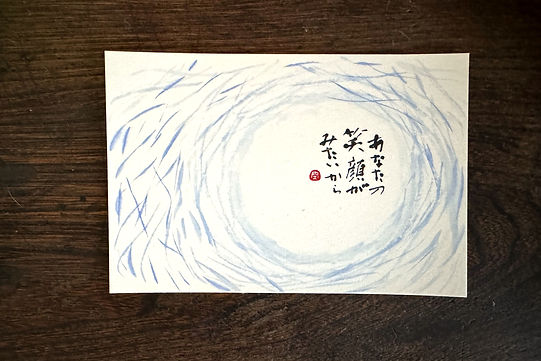 あなたの
笑顔が
みたいから